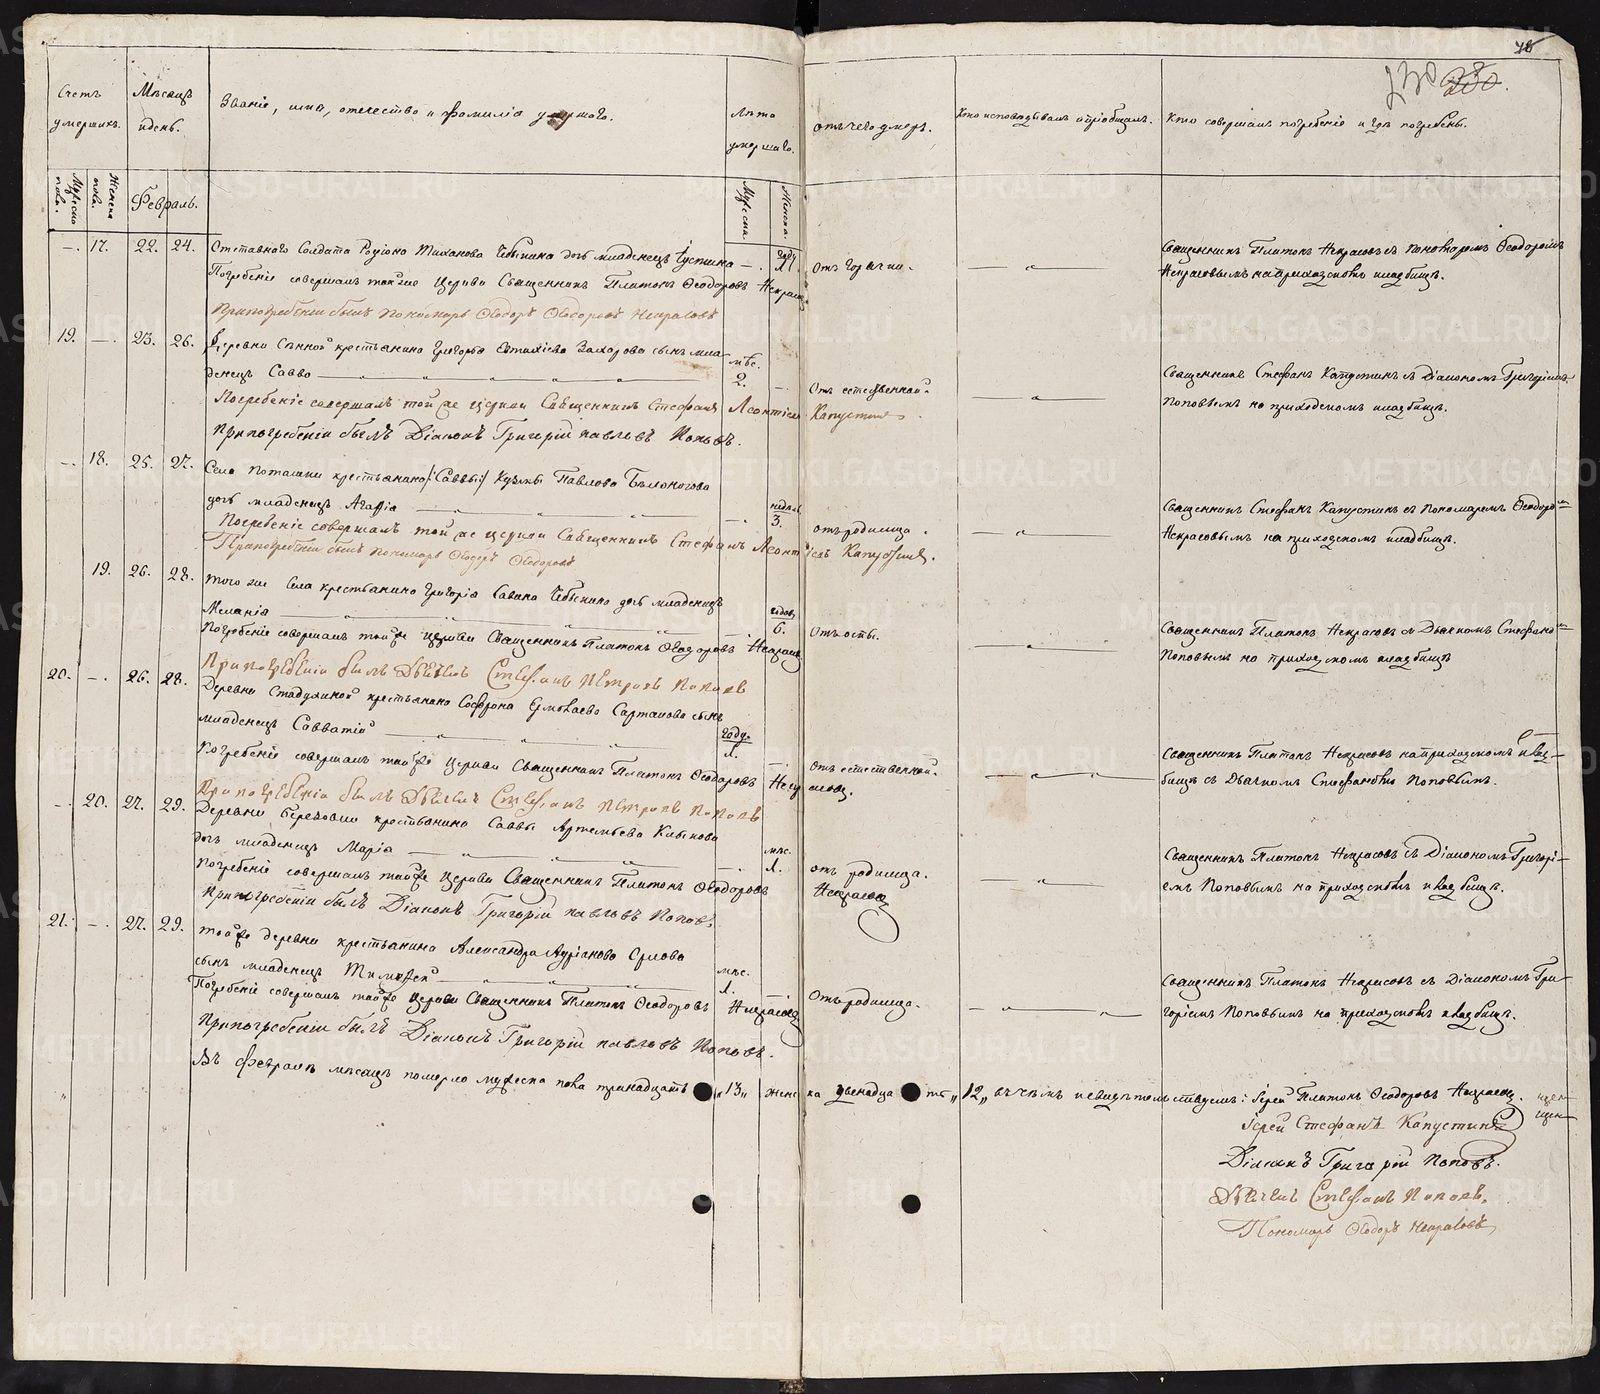 230.
Счетъ умершихъ.
Мѣсяцъ и день.
Званіе, имя, отечество и фамилія умершаго.
Лѣта умершаго.
отъ чего умеръ.
Кто исповѣдывалъ и пріобщалъ.
Кто совершалъ погребеніе и гдѣ погребены.
Мужеска пола.
Женска пола.
Февраль.
Мужска.
Женска.
—. 17. 22. 24. Отставнаго Солдата Родіона Чебыкина дочь младенецъ Іустина —.
Отъ горячки.
Священникъ Платонъ Некрасовъ съ пономаремъ Ѳеодоромъ
Некрасовымъ на приходскомъ кладбищѣ.
Погребеніе совершалъ той же Церкви Священникъ Платонъ Ѳеодоровъ Некрасовъ
При погребеніи былъ Пономарь Ѳеодоръ Ѳеодоровъ Некрасовъ
19. —. 23. 26. Деревни крестьянина Григорья Евтихіева Захарова сынъ мла-
денецъ Савва
мѣс. 2.
Отъ естественной.
Священникъ Стефанъ Капустинъ съ Діакономъ Григоріемъ
Поповымъ на приходскомъ кладбищѣ.
Погребеніе совершалъ той же церкви Священникъ Стефанъ Леонтіевъ Капустинъ
При погребеніи былъ Діаконъ Григорій Павловъ Поповъ.
—. 18. 25. 27. Села Поташки крестьянина /:Саввы:/ Кузьмы Павлова Бѣлоногова
дочь младенецъ Агафія
недѣл. 3.
отъ родимца.
Священникъ Стефанъ Капустинъ съ Пономаремъ Ѳеодоро-
Некрасовымъ на приходскомъ кладбищѣ.
Погребеніе совершалъ той же церкви Священникъ Стефанъ Леонтіевъ Капустинъ.
При погребеніи былъ Пономарь Ѳеодоръ Ѳеодоровъ
19. 26. 28. того же Села крестьянина Григорія Савина Чебыкина дочь младенецъ
Меланія
годовъ 6.
Отъ оспы.
Священникъ Платонъ Некрасовъ съ Дьячкомъ Стефано-
Поповымъ на приходскомъ кладбищѣ
Погребеніе совершалъ той же церкви Священникъ Платонъ Ѳеодоровъ Некрасовъ
При погребеніи былъ Дьячекъ Стефанъ Петровъ Поповъ
20. —. 26. 28. Деревни крестьянина Софрона Ермолаева Сартакова сынъ
младенецъ Савватій
году. 1.
Отъ естественной.
Священникъ Платонъ Некрасовъ на приходскомъ клад-
бищѣ съ Дьячкомъ Стефаномъ Поповымъ.
Погребеніе совершалъ той же Церкви Священникъ Платонъ Ѳеодоровъ Некрасовъ.
При погребеніи былъ Дьячекъ Стефанъ Петровъ Поповъ
—. 20. 27. 29. Деревни Березовки крестьянина Саввы Артемьева
дочь младенецъ Марія
мѣс. 1.
отъ родимца.
Священникъ Платонъ Некрасовъ съ Діакономъ Григорі-
емъ Поповымъ на приходскомъ кладбищѣ.
Погребеніе совершалъ той же Церкви Священникъ Платонъ Ѳеодоровъ Некрасовъ
При погребеніи былъ Діаконъ Григорій Павловъ Поповъ.
21. —. 27. 29. той же деревни крестьянина Александра Адріанова Орлова
сынъ младенецъ Тимофей
мѣс. 1.
Отъ родимца.
Священникъ Платонъ Некрасовъ съ Діакономъ Гри-
горіемъ Поповымъ на приходскомъ кладбищѣ.
Погребеніе совершалъ той же Церкви Священникъ Платонъ Ѳеодоровъ Некрасовъ
При погребеніи былъ Діаконъ Григорій Павловъ Поповъ.
Въ февралѣ мѣсяцѣ померло мужеска пола тринадцать „13„ женска двенадцать „12„ въ чемъ и свидѣтельствуемъ: Іерей Платонъ Ѳеодоровъ Некрасовъ.
Іерей Стефанъ Капустинъ
Діаконъ Григорій Поповъ.
Дьячекъ Стефанъ Поповъ.
Пономарь Ѳеодоръ Некрасовъ
METRIKI.GASO-URAL.RU